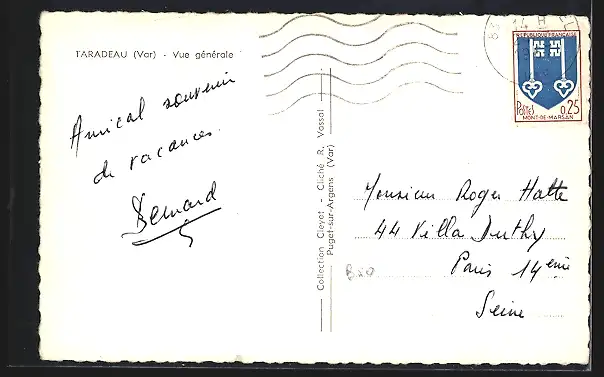 TARADEAU (Var) - Vue générale
Amical souvenir
de vacances
Bernard
Collection Cleyet - Cliché R. Vassal
Puget-sur-Argens (Var)
14 H
REPUBLIQUE FRANÇAISE
POSTES 0,25
MONT-DE-MARSAN
Monsieur Roger Hatte
44 Villa Duthy
Paris 14eme
Seine